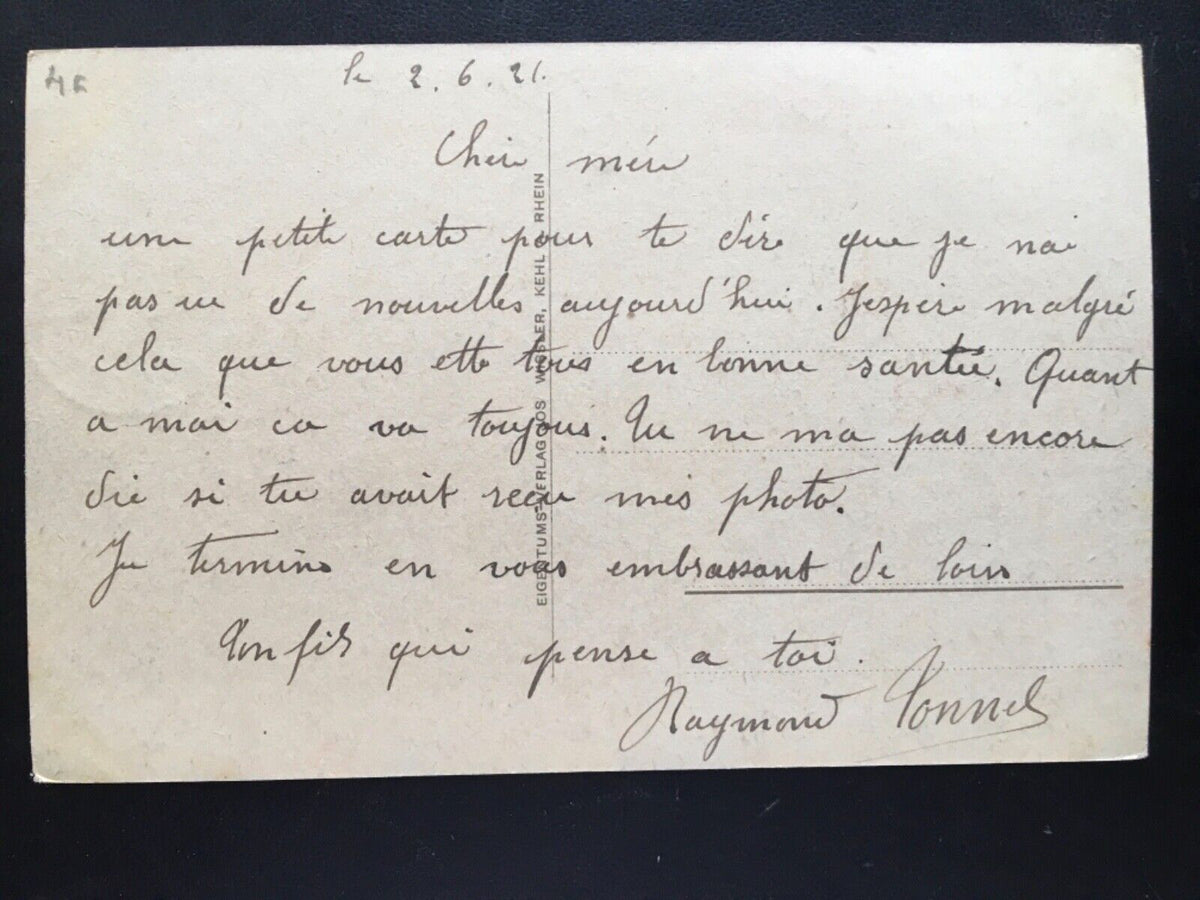 le 2.6.21.
Chère mère
une petite carte pour te dire que je nai
pas eu de nouvelles aujourd'hui. Jespère malgré
cela que vous ette tous en bonne santée. Quant
a moi ca va toujous. Tu ne ma pas encore
die si tu avait recu mes photo.
Je termine en vous embrassant de loin
Ton fils qui pense a toi.
Raymond
EIGENTUMS-VERLAG JOS WISSLER, KEHL A RHEIN